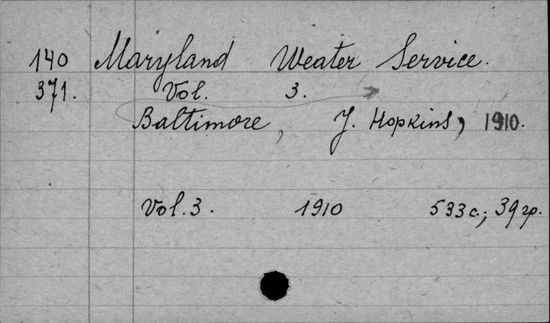 140 Maryland Weater Service.
371. Vol. 3.
Baltimore, J. Hopkins, 1910.
Vol. 3. 1910 533c.; 39 гр.